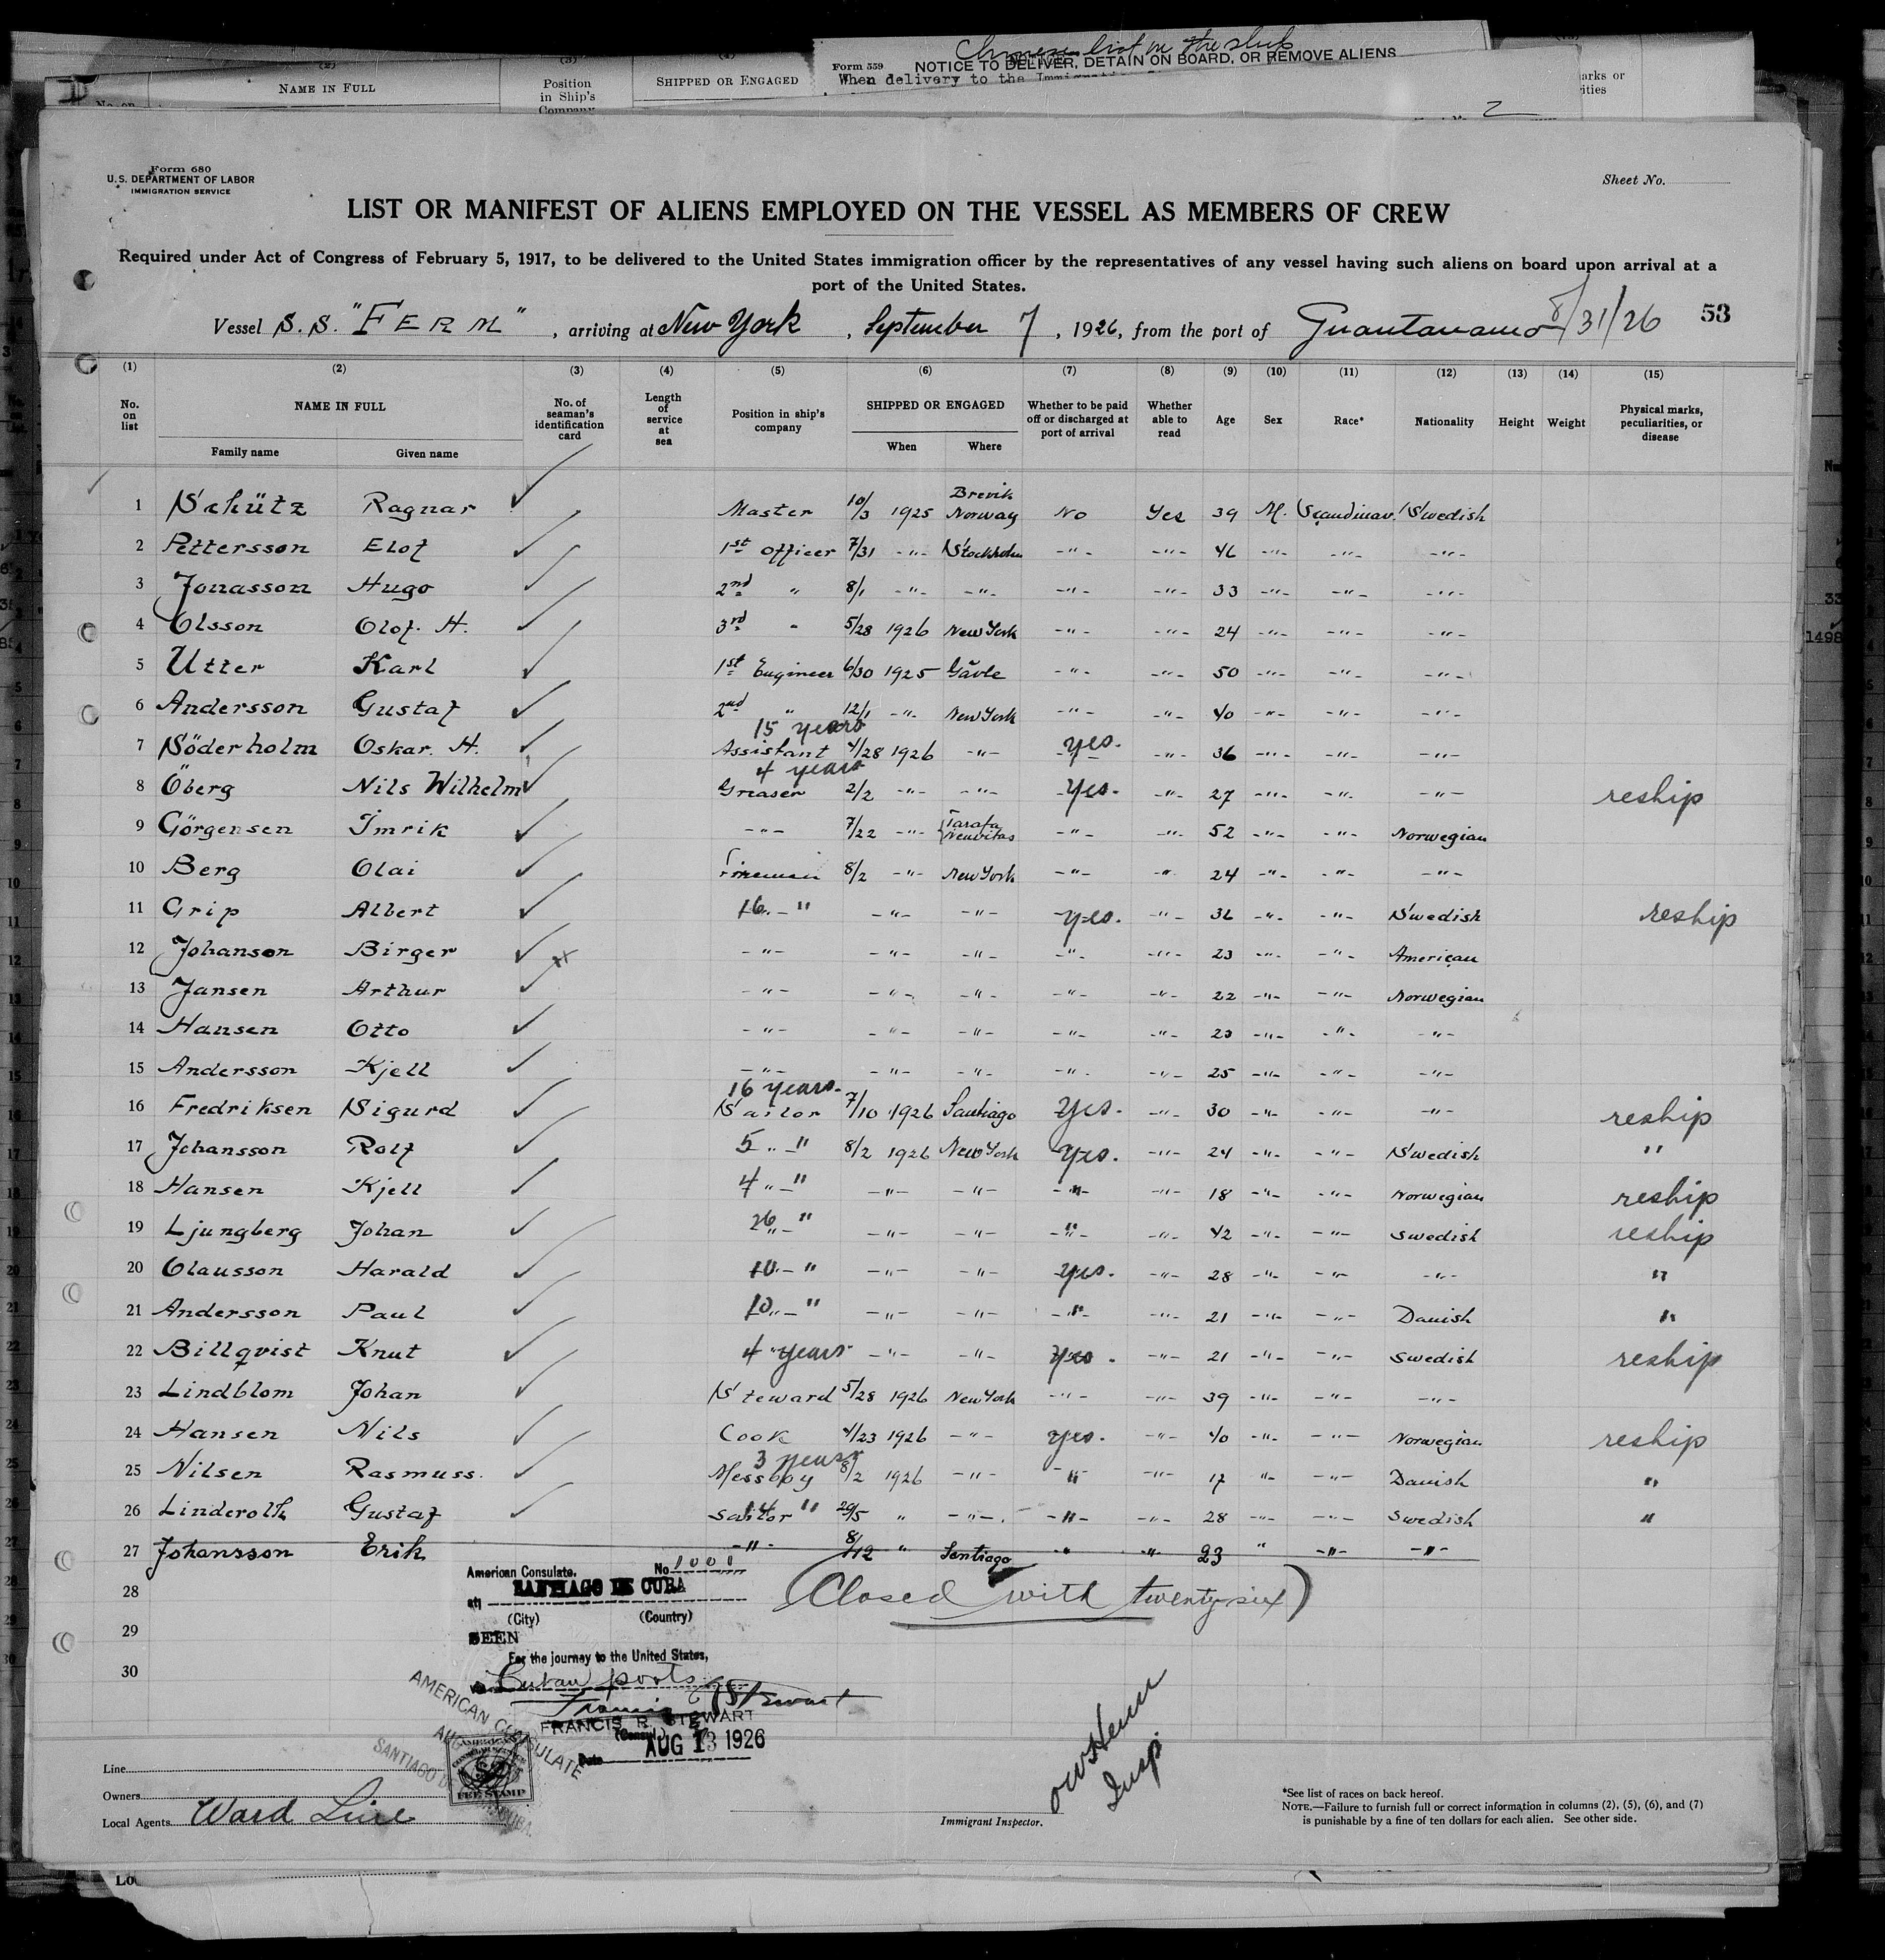 Chinese list in the
Form 559 NOTICE TO DELIVER, DETAIN ON BOARD, OR REMOVE ALIENS
When delivery to the
(2) (3)
NAME IN FULL Position in Ship's Company SHIPPED OR ENGAGED
2
Form 680
U. S. DEPARTMENT OF LABOR
IMMIGRATION SERVICE
Sheet No.
LIST OR MANIFEST OF ALIENS EMPLOYED ON THE VESSEL AS MEMBERS OF CREW
Required under Act of Congress of February 5, 1917, to be delivered to the United States immigration officer by the representatives of any vessel having such aliens on board upon arrival at a
port of the United States.
Vessel S.S. "FERM", arriving at New York, September 7, 1926, from the port of Guantanamo 8/31/26 53
(1) (2) (3) (4) (5) (6) (7) (8) (9) (10) (11) (12) (13) (14) (15)
No. on list NAME IN FULL No. of seaman's identification card Length of service at sea Position in ship's company SHIPPED OR ENGAGED Whether to be paid off or discharged at port of arrival Whether able to read Age Sex Race* Nationality Height Weight Physical marks, peculiarities, or disease
Family name Given name When Where
1 Schütz Ragnar Master 10/3 1925 Brevik Norway No Yes 39 M. Scandinav. Swedish
2 Pettersson Elof 1st Officer 7/31 -"- Stockholm -"- -"- 46 -"- -"- -"-
3 Jonasson Hugo 2nd " 8/1 -"- -"- -"- -"- 33 -"- -"- -"-
4 Olsson Olof. H. 3rd " 5/28 1926 New York -"- -"- 24 -"- -"- -"-
5 Utter Karl 1st Engineer 6/30 1925 Gävle -"- -"- 50 -"- -"- -"-
6 Andersson Gustaf 2nd " 12/1 -"- New York -"- -"- 40 -"- -"- -"-
15 years
7 Söderholm Oskar. H. Assistant 4/28 1926 -"- yes. -"- 36 -"- -"- -"-
4 years
8 Öberg Nils Wilhelm Greaser 2/2 -"- -"- Yes. -"- 27 -"- -"- -"- reship
9 Görgensen Imrik -"- 7/22 -"- Tarafa Neuvitas -"- -"- 52 -"- -"- Norwegian
10 Berg Olai Fireman 8/2 -"- New York -"- -"- 24 -"- -"- -"-
11 Grip Albert 16 -" -"- -"- yes. -"- 36 -"- -"- Swedish reship
12 Johanson Birger -"- -"- -"- -"- -"- 23 -"- -"- American
13 Jansen Arthur -"- -"- -"- -"- -"- 22 -"- -"- Norwegian
14 Hansen Otto -"- -"- -"- -"- -"- 23 -"- -"- -"-
15 Andersson Kjell -"- -"- -"- -"- -"- 25 -"- -"- -"-
16 years.
16 Fredriksen Sigurd Sailor 7/10 1926 Santiago Yes. -"- 30 -"- -"- -"- reship
17 Johansson Rolf 5 -" 8/2 1926 New York Yes. -"- 24 -"- -"- Swedish "
18 Hansen Kjell 4 -" -"- -"- -"- -"- 18 -"- -"- Norwegian reship
19 Ljungberg Johan 26 -" -"- -"- -"- -"- 42 -"- -"- Swedish reship
20 Olausson Harald 10 -" -"- -"- yes. -"- 28 -"- -"- -"- "
21 Andersson Paul 10 -" -"- -"- -"- -"- 21 -"- -"- Danish "
22 Billqvist Knut 4 years -"- -"- yes. -"- 21 -"- -"- Swedish reship
23 Lindblom Johan Steward 5/28 1926 New York -"- -"- 39 -"- -"- -"-
24 Hansen Nils Cook 4/23 1926 -"- yes. -"- 40 -"- -"- Norwegian reship
3 years
25 Nilsen Rasmuss. Messboy 8/2 1926 -"- " -"- 17 "- -"- Danish "
26 Linderoth Gustaf Sailor 14 " 20/5 " -"- -"- -"- 28 -"- -"- Swedish "
27 Johansson Erik -"- 8/12 " Santiago " -"- 23 " -"- -"-
28
29
30
(Closed with twenty six)
American Consulate. No 1001
at SANTIAGO DE CUBA
(City) (Country)
SEEN
For the journey to the United States,
via Cuban ports
Francis R Stewart
FRANCIS R. STEWART
(Consul)
Date AUG 13 1926
AMERICAN CONSULATE
SANTIAGO DE CUBA.
FEE STAMP
Insp.
Line
Owners
Local Agents Ward Line
Immigrant Inspector.
*See list of races on back hereof.
NOTE.—Failure to furnish full or correct information in columns (2), (5), (6), and (7)
is punishable by a fine of ten dollars for each alien. See other side.